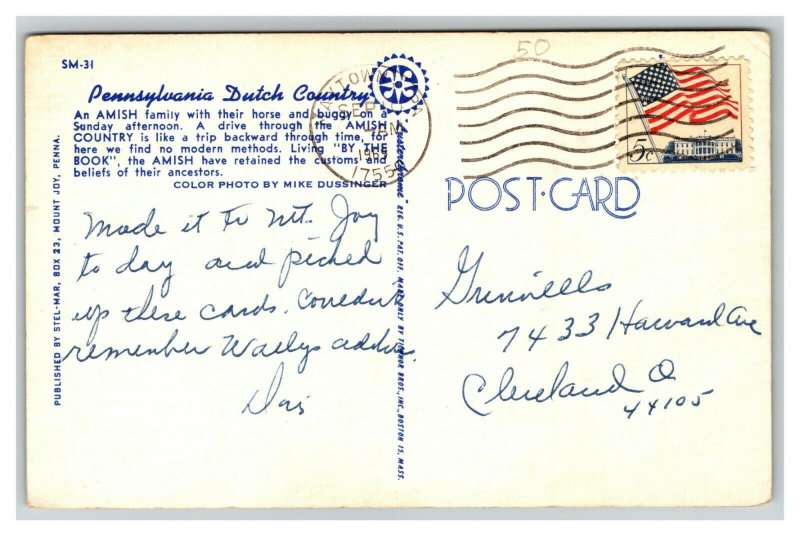 SM-31
50
Pennsylvania Dutch Country
An AMISH family with their horse and buggy on a
Sunday afternoon. A drive through the AMISH
COUNTRY is like a trip backward through time, for
here we find no modern methods. Living "BY THE
BOOK", the AMISH have retained the customs and
beliefs of their ancestors.
COLOR PHOTO BY MIKE DUSSINGER
PUBLISHED BY STEL-MAR, BOX 23, MOUNT JOY, PENNA.
REG. U.S. PAT. OFF. MADE ONLY BY TICHNOR BROS., INC., BOSTON 15, MASS.
SEP
17557
5c
POST CARD
Made it to Mt. Joy
to day and picked
up these cards. Couldn't
remember Wallys address.
Grinnells
7433 Harvard Ave
Cleveland O
44105